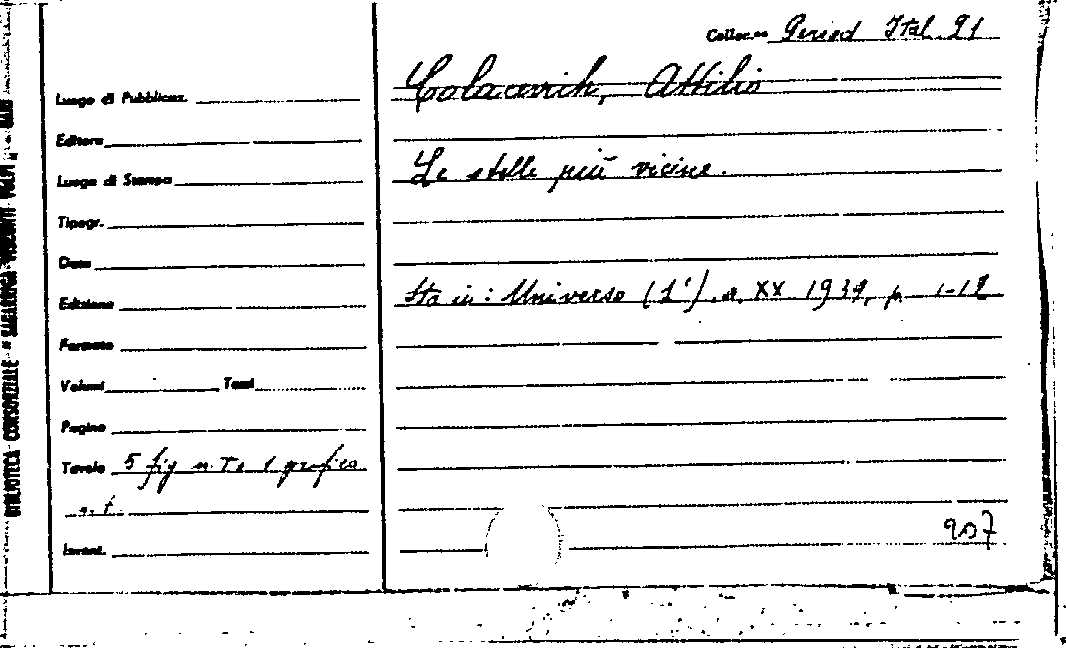 Colloc.ne Period Ital. 91
Colacevich, Attilio
Le stelle più vicine.
Sta in: Universo (L') . a. XX 1939, p. 1-12
Luogo di Pubblicaz.
Editore
Luogo di Stampa
Tipogr.
Data
Edizione
Formato
Volumi Tomi
Pagine
Tavole 5 fig n. t. e 1 grafico
n. t.
Invent.
907
BIBLIOTECA CONSORZIALE "SAGARRIGA VISCONTI VOLPI" - BARI